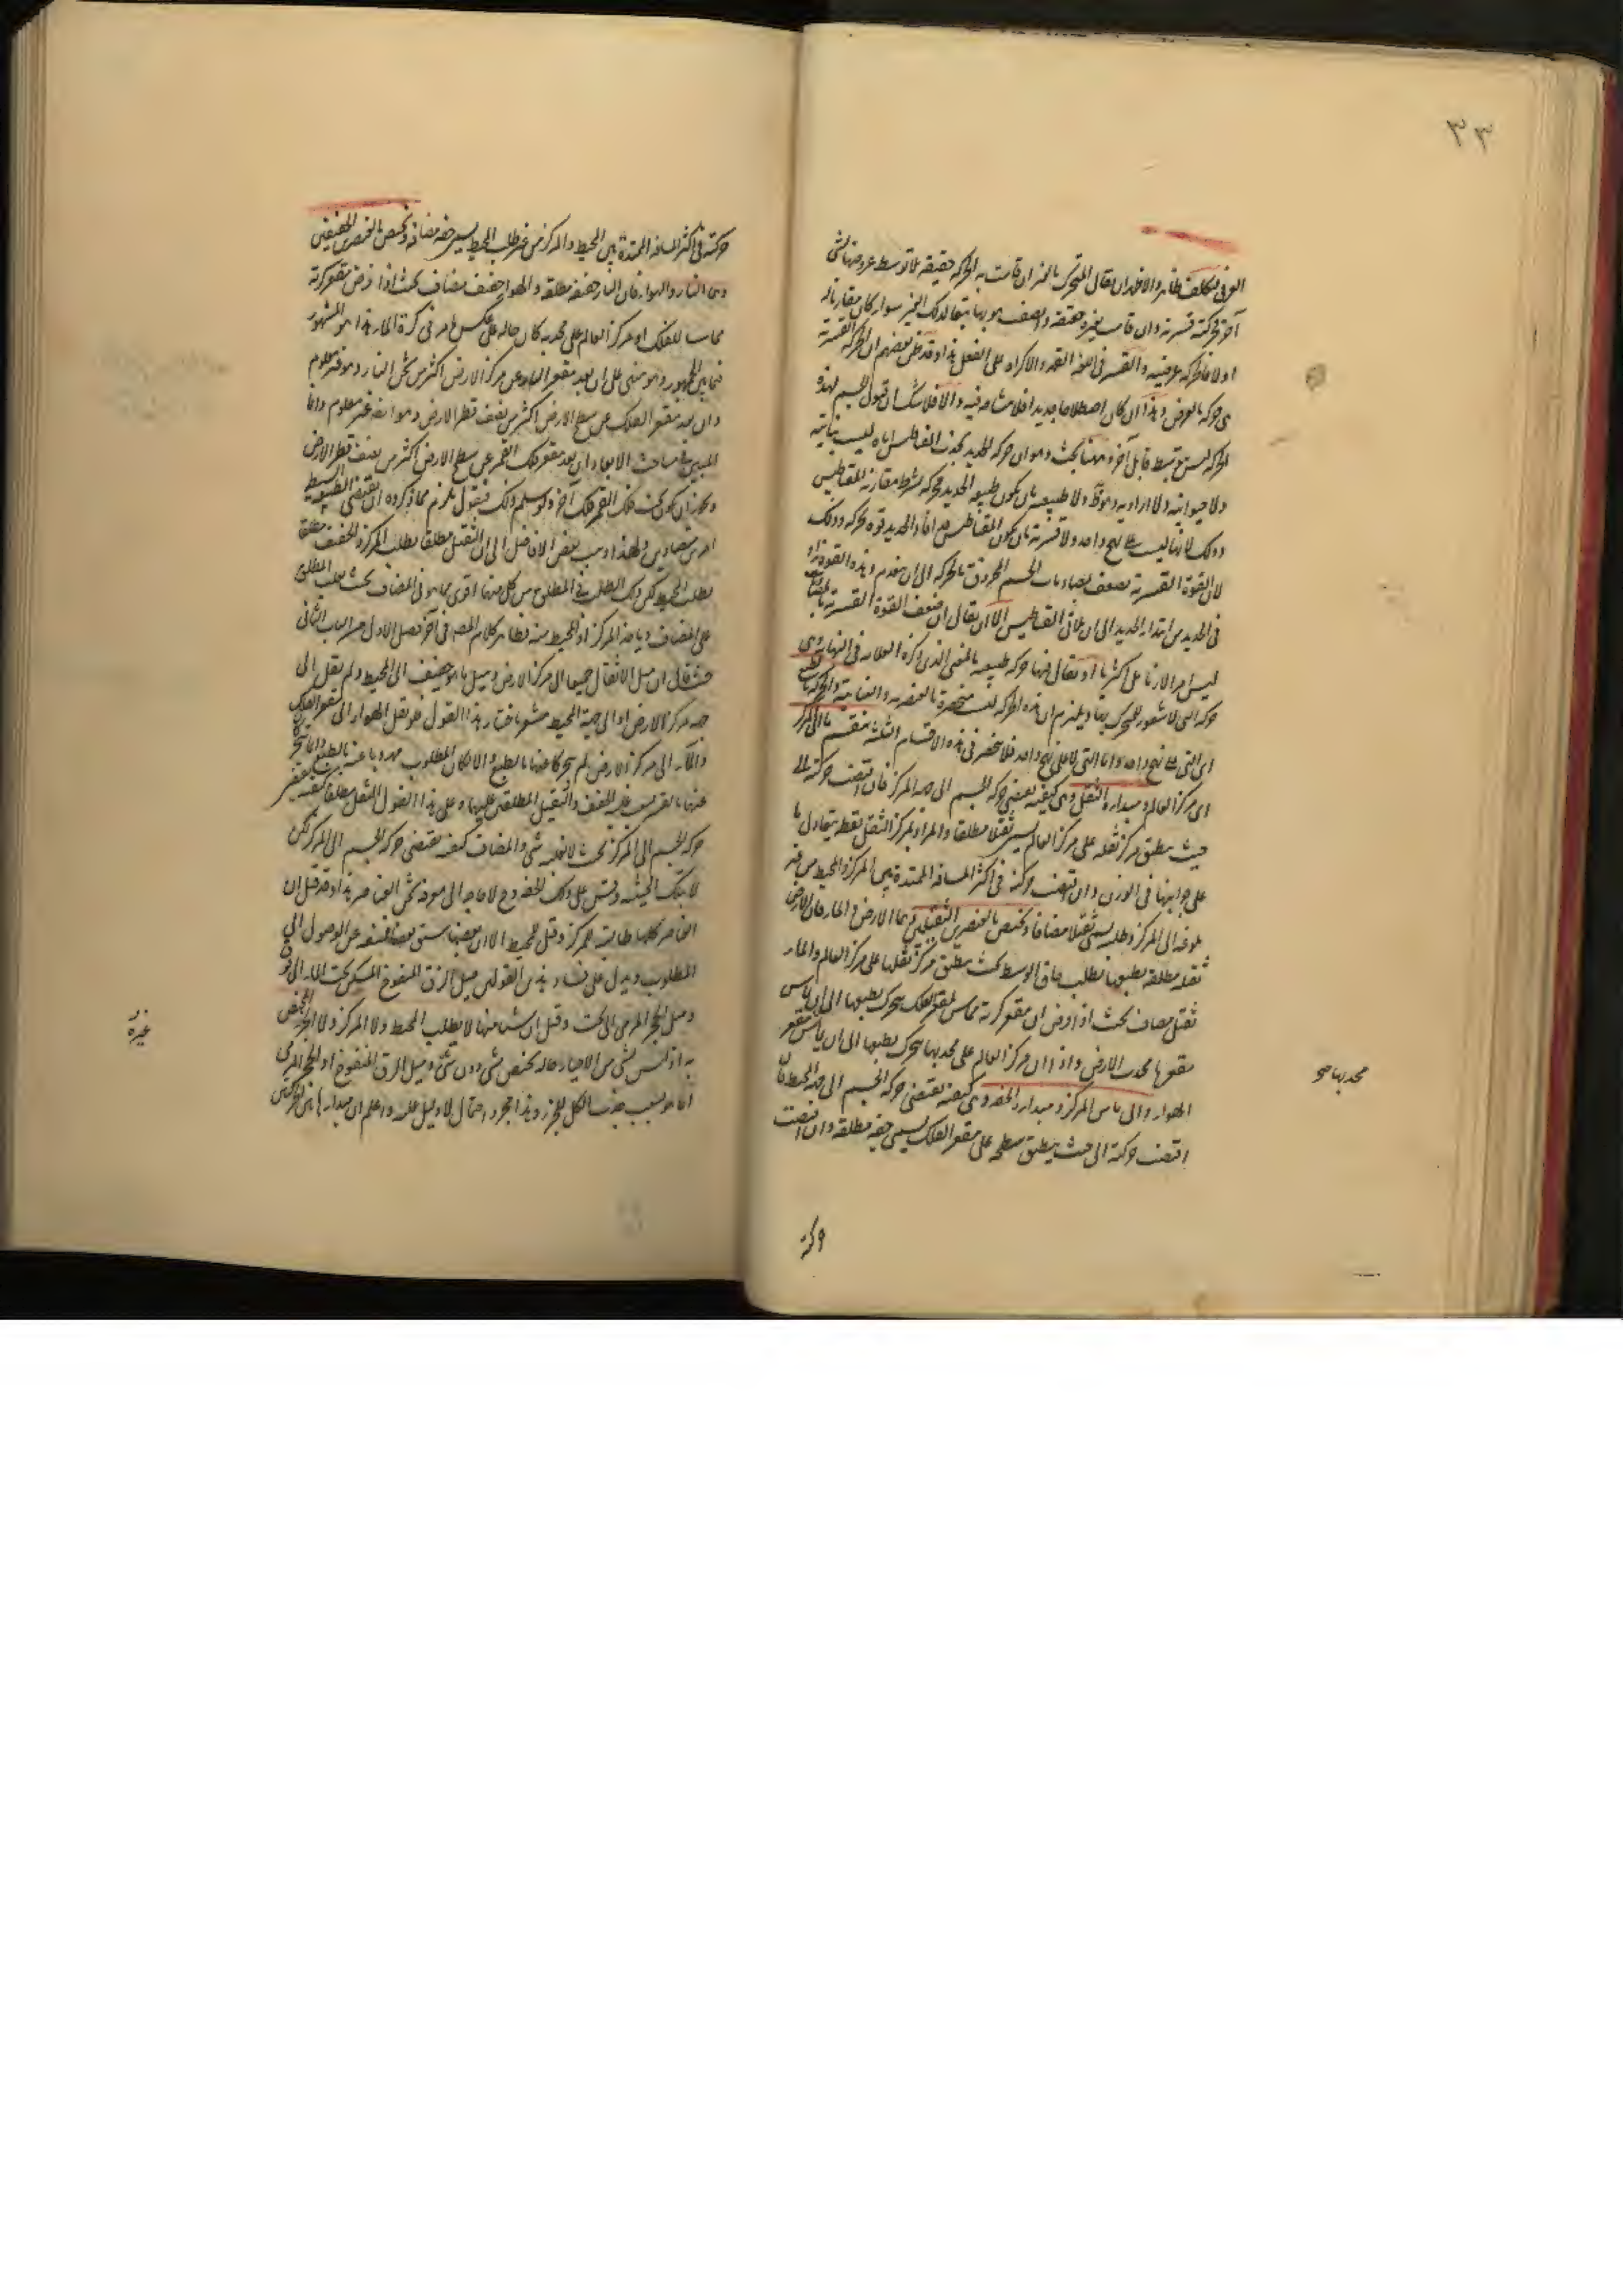 ٣٣
العرفي فتكلف ظاهر والاظهر ان يقال المتحرك بالمنزان قامت به الحركة حقيقة بلا توسط عروضها لشئ
آخر فحركته قسرية وان قامت بغيره حقيقة واتصف هو بها بتبعا لذلك الغير سواء كان مقارنا له
او لا فالحركة عرضية والقسر في اللغة القهر والاكراه على الفعل هذا وقد ظن بعضهم ان الحركة القسرية
هي حركة بالعرض وهذا ان كان اصطلاحا جديدا فلا مشاحة فيه والا فلا شك ان قبول الجسم لهذه
الحركة ليس بتوسط قابل آخر وههنا بحث وهو ان حركة الحديد بجذب المغناطيس اياه ليست نباتية
ولا حيوانية ولا ارادية وهو ظ ولا طبيعية بان يكون طبيعة الحديد محركة بشرط مقارنة المقناطيس
وذلك لانها ليست على نهج واحد ولا قسرية بان يكون المقناطيس مفيدا في الحديد قوة محركة وذلك
لان القوة القسرية تضعف بمصادمات الجسم المخروق بالحركة الى ان ينعدم وهذه القوة تزداد
في الحديد من ابتداء الحديد الى ان يلاقي المقناطيس الا ان يقال ان ضعف القوة القسرية
ليس امرا لازما بل اكثريا او يقال فيها حركة طبيعية بالمعنى الذي ذكره العلامة في النهاية وهي
حركة التي لا شعور للمتحرك بها ويلزم ان هذه الحركة ليست منحصرة بالعنصرية والنباتية والحركة بالطبع
اي التي على نهج واحد واما التي لا على نهج واحد فلا تنحصر في هذه الاقسام الثلثة ينقسم ما الى المركز
اي مركز العالم ومبداءه الثقل وهي كيفية تقتضي حركة الجسم الى جهة المركز فان اقتضت حركته الى
حيث ينطبق مركز ثقله على مركز العالم يسمى ثقلا مطلقا والمراد بمركز الثقل نقطة يتعادل ما
على جوانبها في الوزن وان اقتضت حركته في اكثر المسافة الممتدة بين المركز والمحيط من غير
بلوغه الى المركز وطلبه يسمى ثقلا مضافا ويختص بالعنصرين الثقيلين وهما الارض والماء فان الارض
ثقيلة مطلقة بطبعها يطلب حاق الوسط بحيث ينطبق مركز ثقلها على مركز العالم والماء
ثقيل مضاف بحيث اذا فرض ان مقعر كرته مماس لمقعر الفلك يتحرك بطبعها الى ان يماس
مقعرها محدب الارض واذا ان مركز العالم على محدبها يتحرك بطبعها الى ان يماس مقعر
الهواء والى ماس المركز ومبداءه الخفة وهي كيفية تقتضي حركة الجسم الى جهة المحيط فان
اقتضت حركته الى حيث ينطبق سطحه على مقعر الفلك يسمى خفة مطلقة وان اقتضت
محدبها صح
حركته
حركته في اكثر المسافة الممتدة بين المحيط والمركز من غير طلب المحيط يسمى خفة مضافة ويختص بالعنصرين الخفيفين
وهما النار والهواء فان النار خفيفة مطلقة والهواء خفيف مضاف بحيث اذا فرض مقعر كرته
مماسا للفلك او مركز العالم على محدبه كان حاله على عكس ما مر في كرة الماء هذا هو المشهور
فيما بين الجمهور وهو مبني على ان بعد مقعر النار عن مركز الارض اكثر من ثخن النار وهو غير معلوم
وان بعد مقعر الفلك عن سطح الارض اكثر من نصف قطر الارض وهو ايضا غير معلوم وانما
المبين في مباحث الابعاد ان بعد مقعر فلك القمر عن سطح الارض اكثر من نصف قطر الارض
ويجوز ان يكون تحت فلك القمر فلك آخر ولو سلم ذلك فنقول يلزم مما ذكروه ان يقتضي الطبيعة البسيطة
امرين متضادين ولهذا ذهب بعض الافاضل الى ان الثقيل مطلقا يطلب المركز والخفيف مطلقا
يطلب المحيط لكن ذلك الطلب في المطلق من كل منهما اقوى مما هو في المضاف بحيث يغلب المطلق
على المضاف وياخذ المركز او المحيط منه وظاهر كلام المص في آخر فصل الاول من الباب الثاني
حيث قال ان ميل الاثقال جميعا الى مركز الارض وميل ما هو خفيف الى المحيط ولم يقل الى
جهة مركز الارض او الى جهة المحيط مشعر باختيار هذا القول فلو نقل الهواء الى مقعر الفلك
والماء الى مركز الارض لم يتحركا عنها بالطبع والا لكان المطلوب مهروبا عنه بالطبع وانما يتحرك
عنها بالقسر بسبب غلبة الخفيف والثقيل المطلقين عليهما وعلى هذا القول الثقل مطلقا كيفية تقتضي
حركة الجسم الى المركز بحيث لا يغلبه شئ والمضاف كيفية تقتضي حركة الجسم الى المركز لكن
لا بتلك الحيثية وقس على ذلك الخفة وح لا حاجة الى معرفة ثخن العناصر هذا وقد قيل ان
العناصر كلها طالبة للمركز وقيل للمحيط الا ان بعضها سبق بعضا فمنعه عن الوصول الى
المطلوب ويدل على فساد هذين القولين ميل الزق المنفوخ المسكن تحت الماء الى فوق
وميل الحجر المرمى الى تحت وقيل ان شيئا منها لا يطلب المحيط ولا المركز ولا الحيز المختص
به اذ ليس لشئ من الاحياز حالة يختص بشئ دون شئ وميل الزق المنفوخ او الحجر المرمى
انما هو بسبب جذب الكل للجزء وهذا مجرد احتمال لا دليل عليه واعلم ان مبداء هاتين الحركتين
غيره